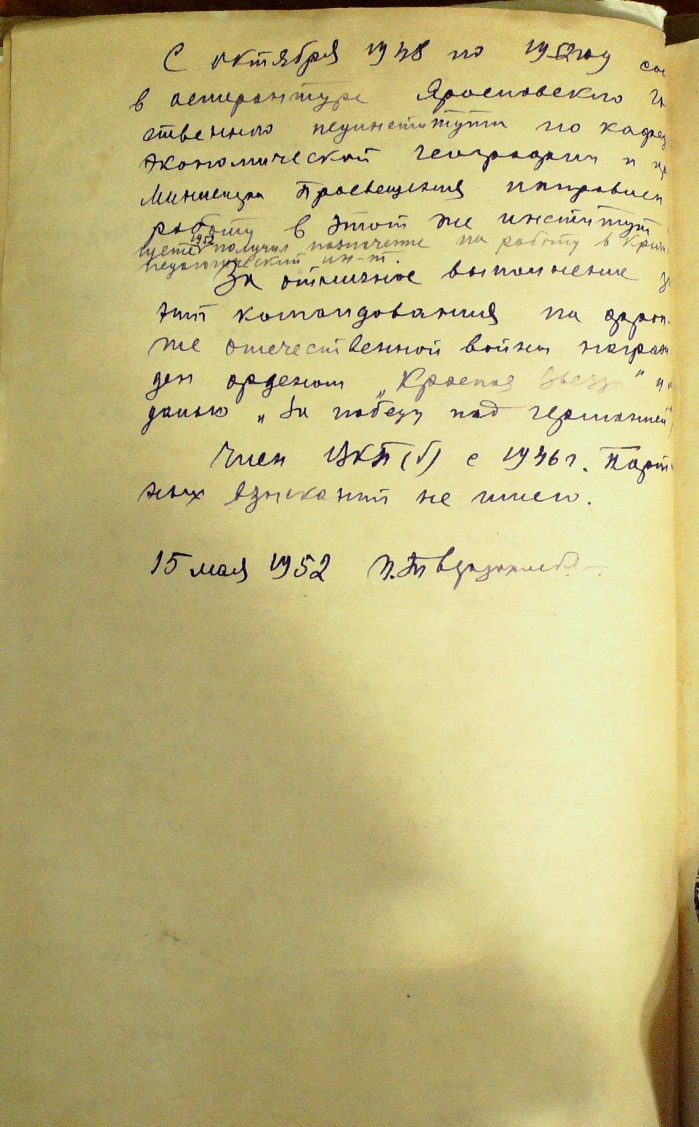 С октября 1948 по 1952 год сос
в аспирантуре Ярославского Го
ственного пединститута по кафед
экономической географии и
Министерства Просвещения направлен
работу в этот же институт
1952 получил назначение на работу в Крым
педагогический ин-т.
За отличное выполнение за
ний командования на фрон
те отечественной войны награж
ден орденом „Красная Звезда" и
далью „За победу над Германией"
Член ВКП(б) с 1946 г. Парти
ных взысканий не имею.
15 мая 1952